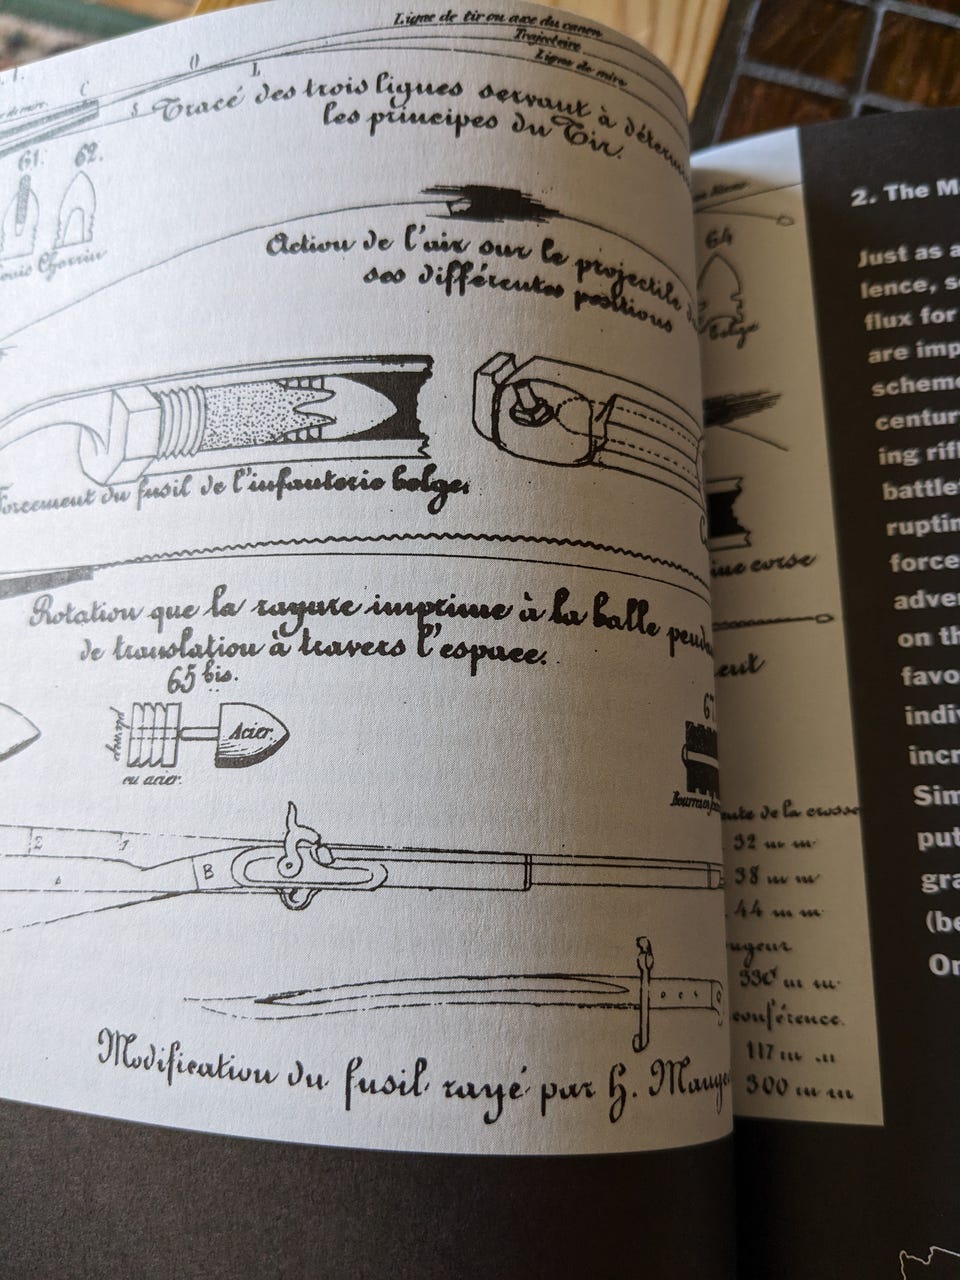 Ligne de tir ou axe du canon
Trajectoire
Ligne de mire
C
O
L
S
Tracé des trois lignes servant à
les principes du Tir.
61.
62.
Action de l'air sur le projectile
ses différentes positions
Forcement du fusil de l'infanterie belge.
Rotation que la rayure imprime à la balle
de translation à travers l'espace.
65 bis.
Acier.
ou acier.
67
B
Modification du fusil rayé par H.
64
belge
corse
de la crosse
32 m m
38 m m
44 m m
330 m m
117 m m
300 m m
2. The M
Just as a
lence, s
flux for
are imp
scheme
centur
ing rifl
battle
ruptin
force
adve
on th
favo
indiv
incr
Sim
put
gra
(be
Or